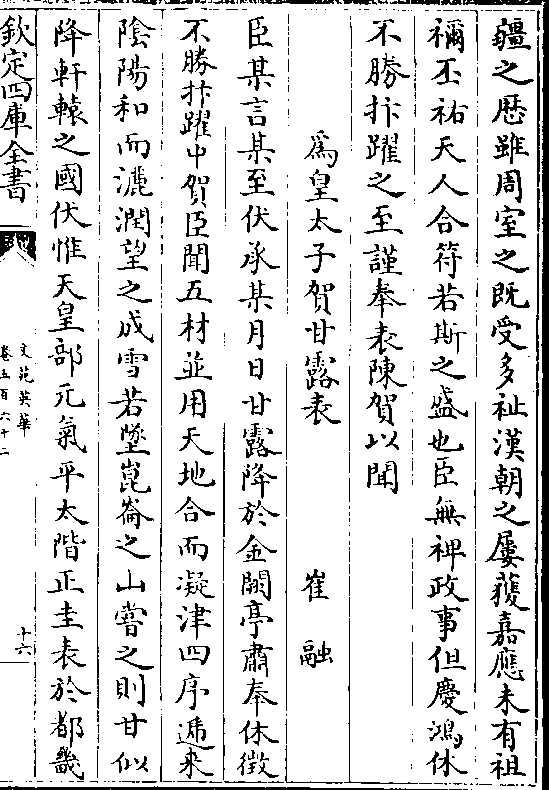 疆之歴雖周室之既受多祉漢朝之屢獲嘉應未有祖
禰丕祐天人合符若斯之盛也臣無裨政事但慶鴻休
不勝抃躍之至謹奉表陳賀以聞
爲皇太子賀甘露表 崔融
臣某言某至伏承某月日甘露降於金闕亭肅奉休徴
不勝抃躍中賀臣聞五材並用天地合而凝津四序遞來
陰陽和而灑潤望之成雪若墜崑崙之山嘗之則甘似
降軒轅之國伏惟天皇部元氣平太階正圭表於都畿
欽定四庫全書
文苑英華
卷五百六十二
十六